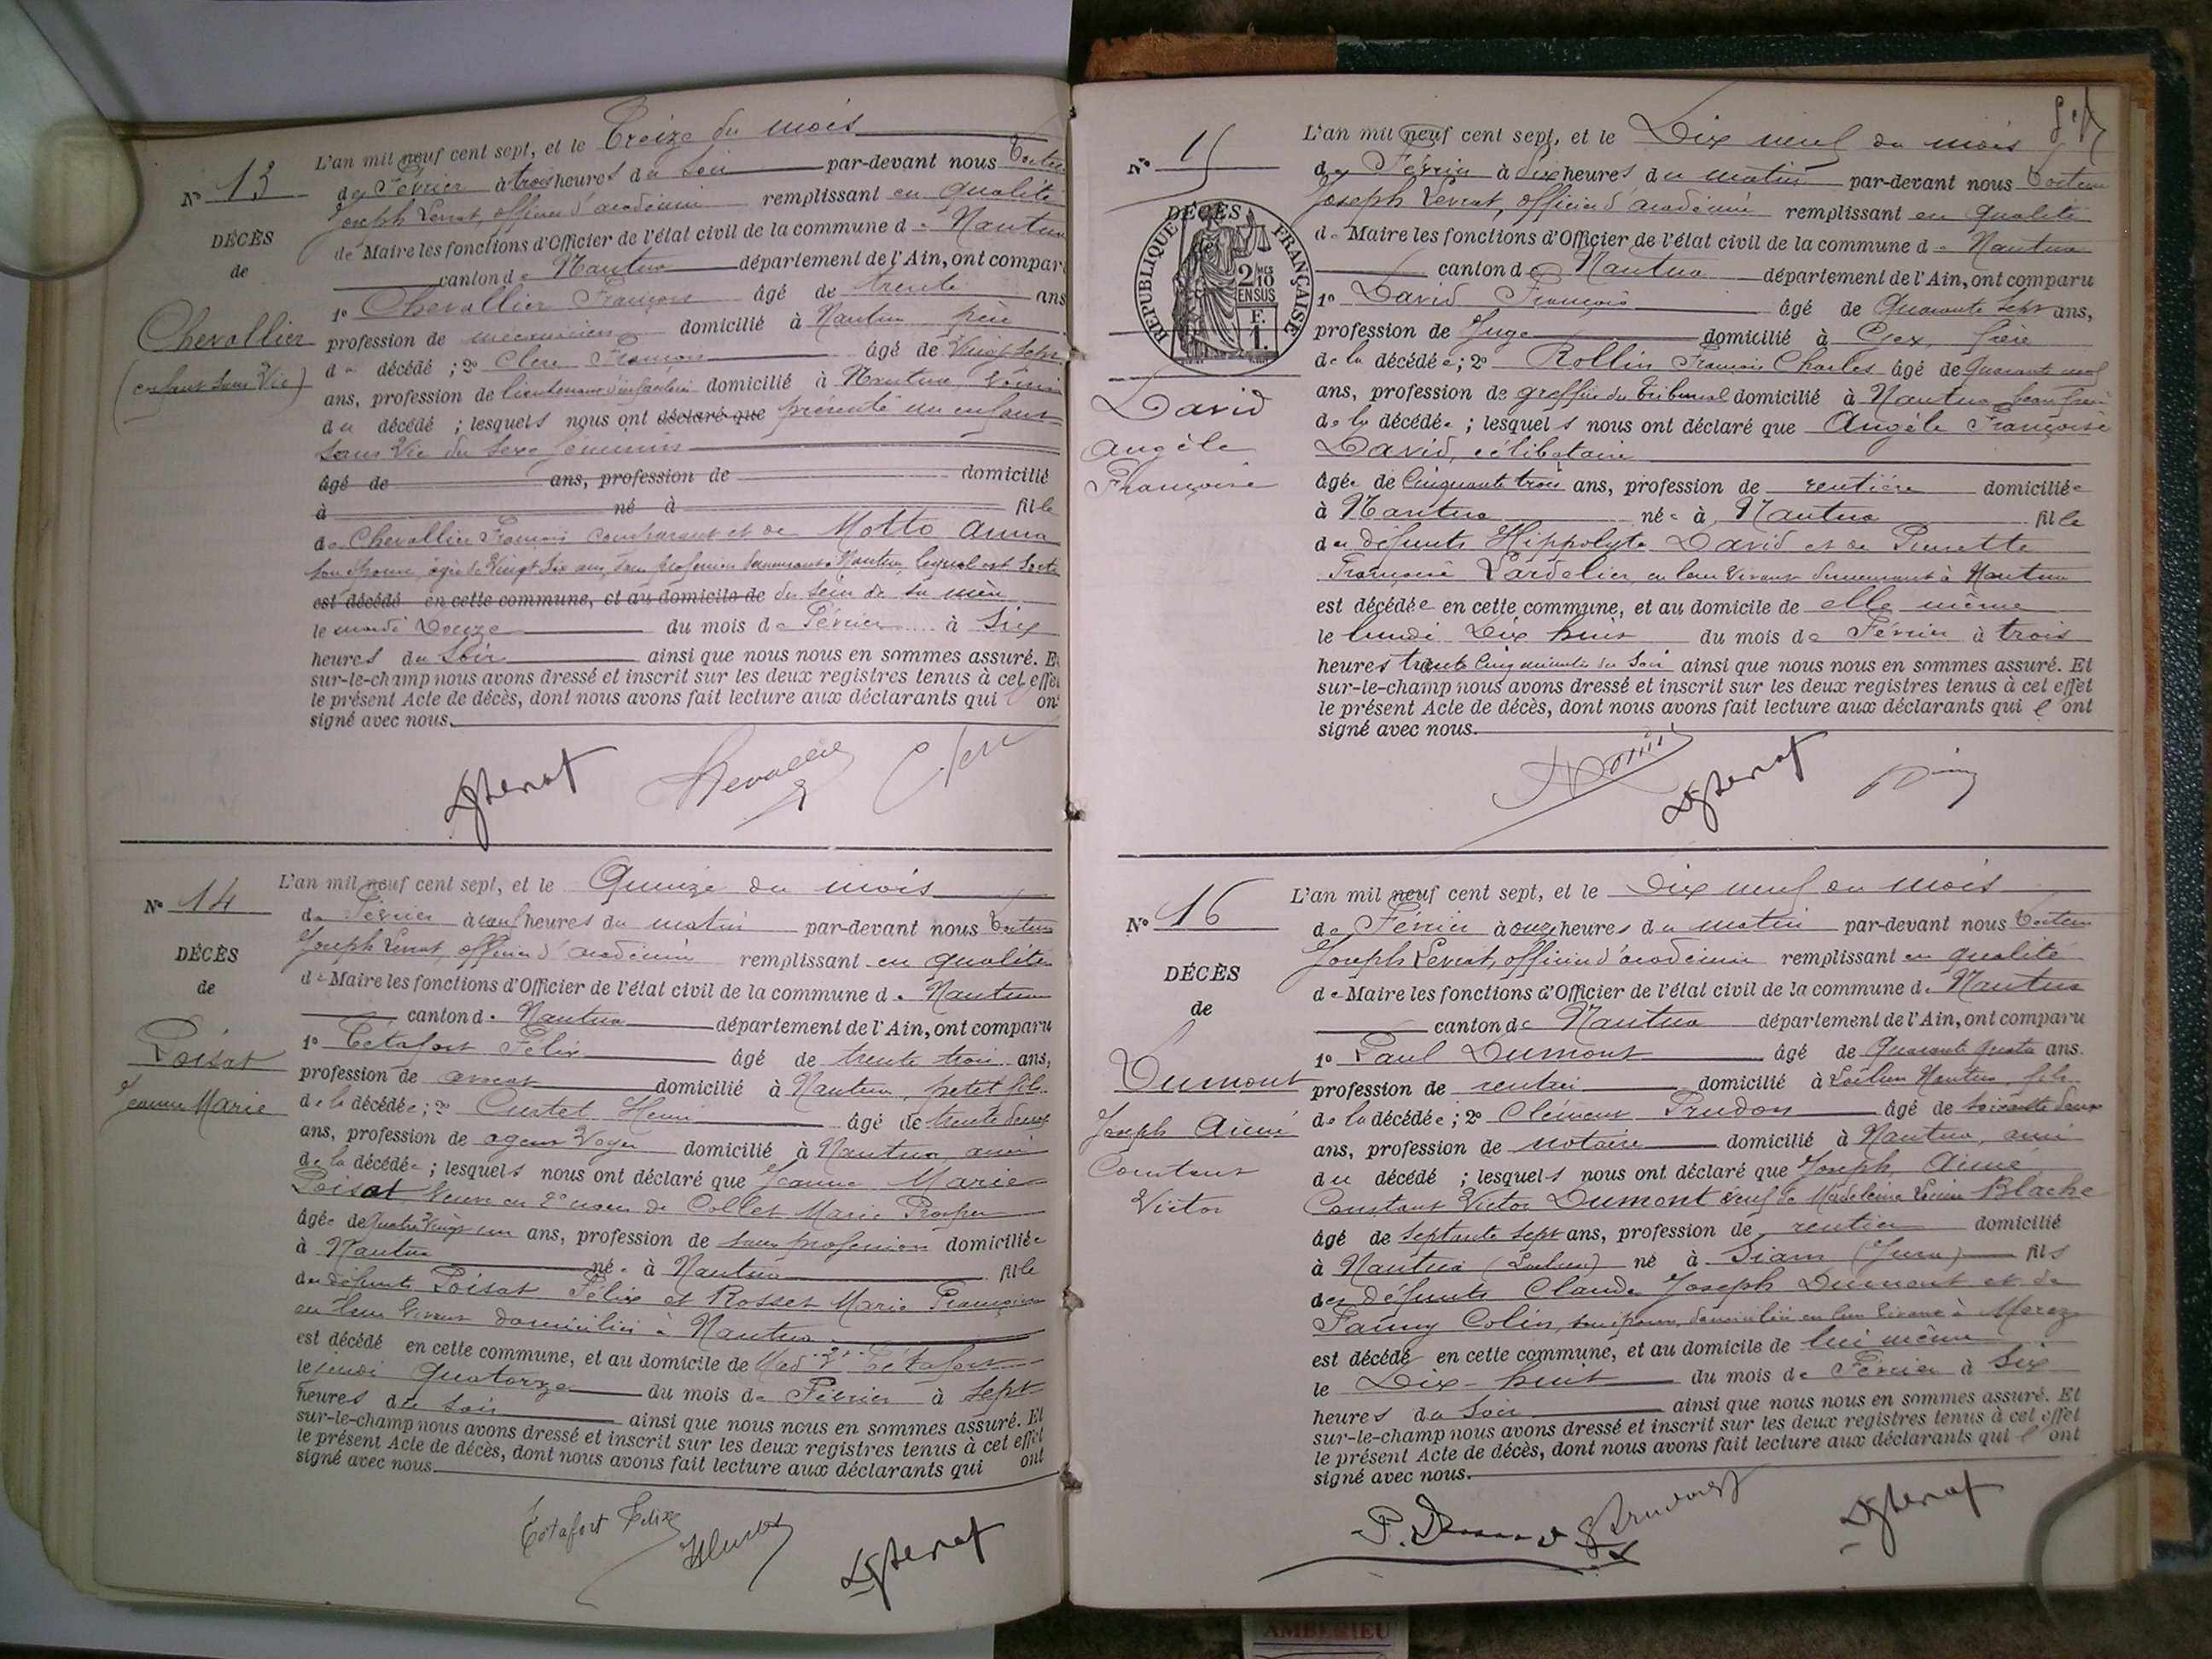 L'an mil neuf cent sept, et le Treize du mois
N° 13
de Février à trois heures du soir par-devant nous
Joseph officier d'académie remplissant en qualité
DÉCÈS
de Maire les fonctions d'Officier de l'état civil de la commune de Nantua
de
canton de Nantua département de l'Ain, ont compar
Chevallier
(enfant sans Vie)
1° Chevallier François âgé de trente ans
profession de mécanicien domicilié à Nantua père
du décédé ; 2° Clerc François âgé de Vingt sept
ans, profession de lieutenant d'infanterie domicilié à Nantua voisin
du décédé ; lesquels nous ont déclaré que présenté un enfant
sans Vie du sexe féminin
âgé de ans, profession de domicilié
à né à fille
de Chevallier François comparant et de Motto Anna
son épouse, âgée de Vingt six ans, sans profession demeurant à Nantua, lequel est sorti
est décédé en cette commune, et au domicile de du sein de sa mère
le mardi Douze du mois de Février à Six
heures du Soir ainsi que nous nous en sommes assuré. E
sur-le-champ nous avons dressé et inscrit sur les deux registres tenus à cet effe
le présent Acte de décès, dont nous avons fait lecture aux déclarants qui on
signé avec nous.
Chevallier
Clerc
L'an mil neuf cent sept, et le Quinze du mois
N° 14
de Février à neuf heures du matin par-devant nous
Joseph officier d'académie remplissant en qualité
DÉCÈS
de Maire les fonctions d'Officier de l'état civil de la commune de Nantua
de
canton de Nantua département de l'Ain, ont comparu
Poisat
Jeanne Marie
1° Tétafort Félix âgé de trente trois ans,
profession de avocat domicilié à Nantua, petit fils
de la décédée ; 2° Curtet Henri âgé de trente deux
ans, profession de agent Voyer domicilié à Nantua, ami
de la décédée ; lesquels nous ont déclaré que Jeanne Marie
Poisat Veuve en 2e noces de Collet Marie Prosper
âgée de quatre Vingt un ans, profession de sans profession domiciliée
à Nantua née à Nantua fille
des défunts Poisat Félix et Rosset Marie Françoise
en leur Vivant domiciliés à Nantua
est décédé en cette commune, et au domicile de Mad. Vve Tétafort
le jeudi Quatorze du mois de Février à Sept
heures du soir ainsi que nous nous en sommes assuré. Et
sur-le-champ nous avons dressé et inscrit sur les deux registres tenus à cet effet
le présent Acte de décès, dont nous avons fait lecture aux déclarants qui ont
signé avec nous.
Tétafort Félix
L'an mil neuf cent sept, et le Dix neuf du mois
N° 15
de Février à dix heures du matin par-devant nous
Joseph officier d'académie remplissant en qualité
DÉCÈS
de
RÉPUBLIQUE FRANÇAISE
2/10 MES
EN SUS
F.
1.
de Maire les fonctions d'Officier de l'état civil de la commune de Nantua
canton de Nantua département de l'Ain, ont comparu
1° David François âgé de Quarante Sept ans,
profession de Juge domicilié à Gex, frère
de la décédée ; 2° Rollin François Charles âgé de Quarante neuf
ans, profession de greffier du Tribunal domicilié à Nantua beau frère
David
Angèle
Françoise
de la décédée ; lesquels nous ont déclaré que Angèle Françoise
David, célibataire
âgée de Cinquante trois ans, profession de rentière domiciliée
à Nantua née à Nantua fille
des défunts Hippolyte David et de Pierrette
Françoise en leur Vivant demeurant à Nantua
est décédée en cette commune, et au domicile de elle même
le lundi Dix huit du mois de Février à trois
heures trente Cinq minutes du Soir ainsi que nous nous en sommes assuré. Et
sur-le-champ nous avons dressé et inscrit sur les deux registres tenus à cet effet
le présent Acte de décès, dont nous avons fait lecture aux déclarants qui l'ont
signé avec nous.
L'an mil neuf cent sept, et le Dix neuf du mois
N° 16
de Février à onze heures du matin par-devant nous
Joseph officier d'académie remplissant en qualité
DÉCÈS
de Maire les fonctions d'Officier de l'état civil de la commune de Nantua
de
canton de Nantua département de l'Ain, ont comparu
Dumont
Joseph Aimé
Constant
Victor
1° Paul Dumont âgé de Quarante quatre ans.
profession de rentier domicilié à Nantua, fils
de la décédée ; 2° Clément Prudon âgé de soixante deux
ans, profession de notaire domicilié à Nantua, ami
du décédé ; lesquels nous ont déclaré que Joseph Aimé
Constant Victor Dumont veuf de Madeleine Blache
âgé de septante sept ans, profession de rentier domicilié
à Nantua né à Siam (Jura) fils
des défunts Claude Joseph Dumont et de
Fanny Colin, son épouse, domiciliés en leur vivant à Morez
est décédé en cette commune, et au domicile de lui même
le Dix-huit du mois de Février à Six
heures du Soir ainsi que nous nous en sommes assuré. Et
sur-le-champ nous avons dressé et inscrit sur les deux registres tenus à cet effet
le présent Acte de décès, dont nous avons fait lecture aux déclarants qui l'ont
signé avec nous.
AMBERIEU